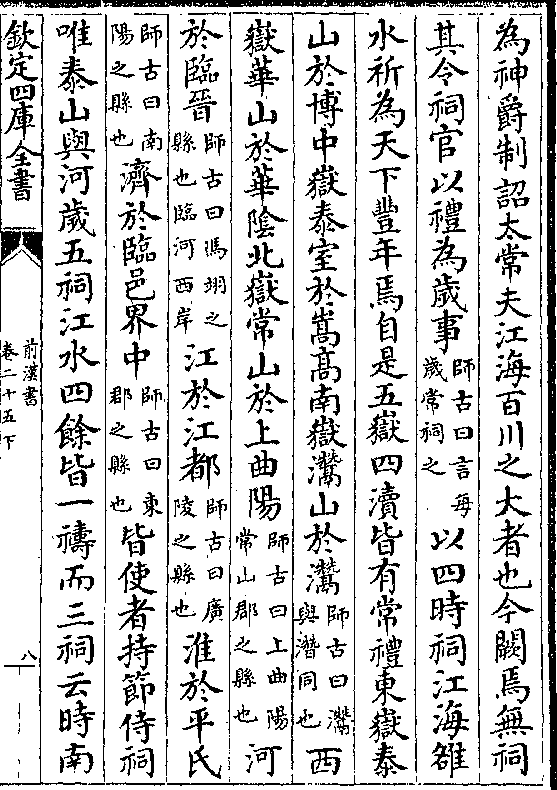 為神爵制詔太常夫江海百川之大者也今闕焉無祠
其令祠官以禮為歲事師古曰言每歲常祠之以四時祠江海雒
水祈為天下豐年焉自是五嶽四瀆皆有常禮東嶽泰
山於博中嶽泰室於嵩高南嶽灊山於灊師古曰灊與潛同也西
嶽華山於華陰北嶽常山於上曲陽師古曰上曲陽常山郡之縣也河
於臨晉師古曰馮翊之縣也臨河西岸江於江都師古曰廣陵之縣也淮於平氏
師古曰南陽之縣也濟於臨邑界中師古曰東郡之縣也皆使者持節侍祠
唯泰山與河歲五祠江水四餘皆一禱而三祠云時南
欽定四庫全書
前漢書
卷二十五下
八